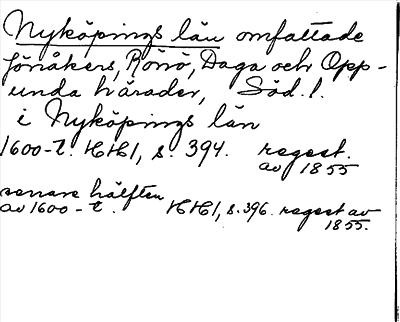 Nyköpings län omfattade
Jönåkers, Rönö, Daga och Opp-
unda härader, Söd. l.
i Nyköpings län
1600-t. HH1, s. 394. regest.
av 1855
senare hälften
av 1600-t. HH1, s. 396. regest av
1855.